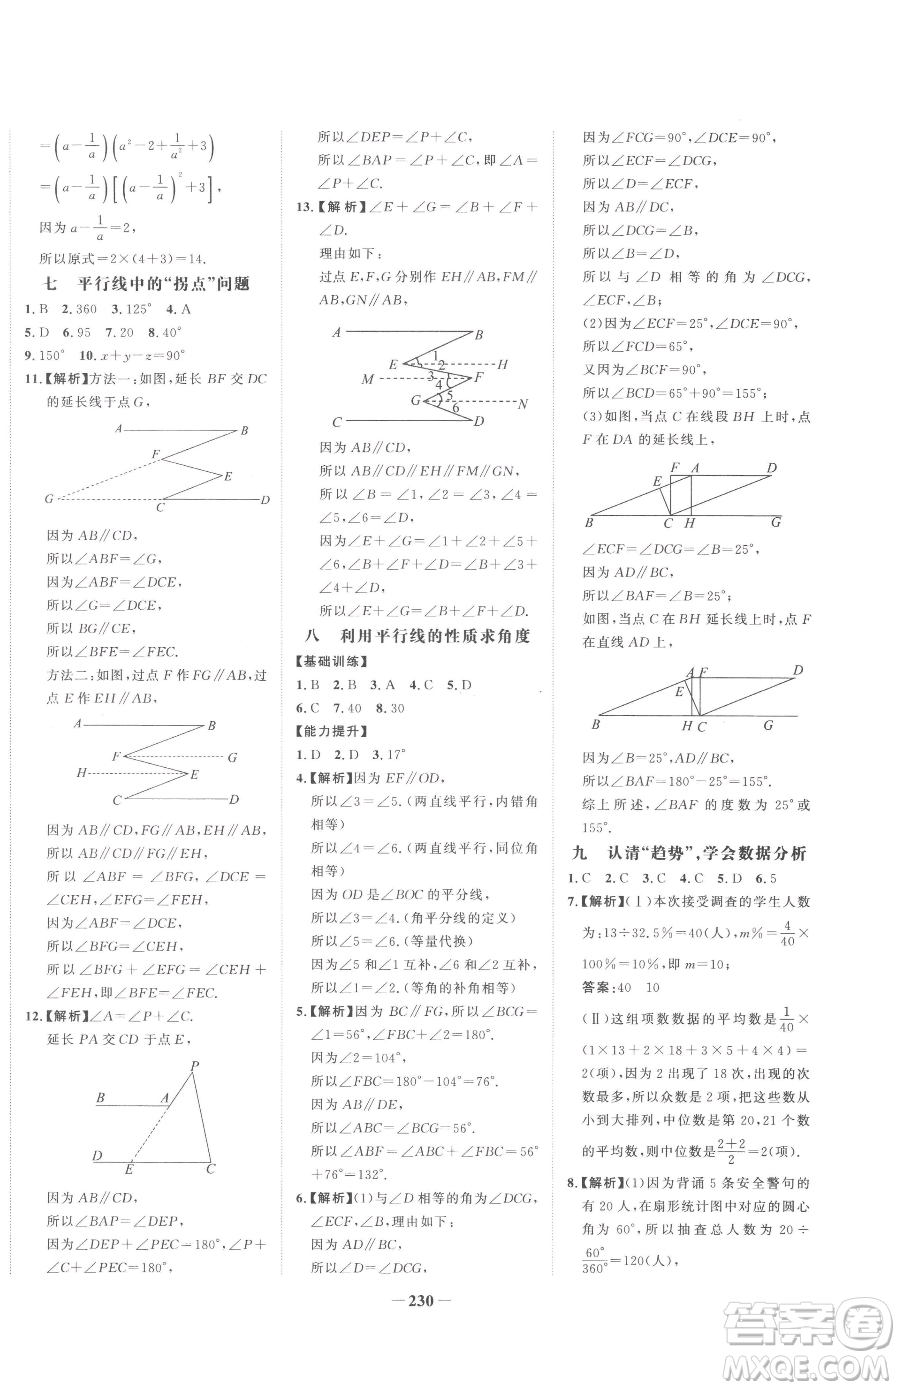 =(a-1/a)(a²-2+1/a²+3)
=(a-1/a)[(a-1/a)²+3],
因为 a-1/a=2,
所以原式=2×(4+3)=14.
七 平行线中的“拐点”问题
1.B 2.360 3.125° 4.A
5.D 6.95 7.20 8.40°
9.150° 10.x+y-z=90°
11.【解析】方法一:如图,延长 BF 交 DC
的延长线于点 G,
A B
F
E
G C D
因为 AB∥CD,
所以∠ABF=∠G,
因为∠ABF=∠DCE,
所以∠G=∠DCE,
所以 BG∥CE,
所以∠BFE=∠FEC.
方法二:如图,过点 F 作 FG∥AB,过
点 E 作 EH∥AB,
A B
F G
H E
C D
因为 AB∥CD,FG∥AB,EH∥AB,
所以 AB∥CD∥FG∥EH,
所 以 ∠ABF = ∠BFG, ∠DCE =
∠CEH,∠GFE=∠FEH,
因为∠ABF=∠DCE,
所以∠BFG=∠CEH,
所 以 ∠BFG + ∠EFG = ∠CEH +
∠FEH,即∠BFE=∠FEC.
12.【解析】∠A=∠P+∠C.
延长 PA 交 CD 于点 E,
P
B A
D E C
因为 AB∥CD,
所以∠BAP=∠DEP,
因为∠DEP+∠PEC=180°,∠P+
∠C+∠PEC=180°,
所以∠DEP=∠P+∠C,
所以∠BAP=∠P+∠C,即∠A=
∠P+∠C.
13.【解析】∠E+∠G=∠B+∠F+
∠D.
理由如下:
过点 E,F,G 分别作 EH∥AB,FM∥
AB,GN∥AB,
A B
E 1 2 H
M 3 4 F
G 5 6 N
C D
因为 AB∥CD,
所以 AB∥CD∥EH∥FM∥GN,
所以∠B=∠1,∠2=∠3,∠4=
∠5,∠6=∠D,
所以∠1+∠2+∠5+∠6=∠B+∠3+
∠4+∠D,
所以∠E+∠G=∠B+∠F+∠D.
八 利用平行线的性质求角度
【基础训练】
1.B 2.B 3.A 4.C 5.D
6.C 7.40 8.30
【能力提升】
1.D 2.D 3.17°
4.【解析】因为 EF∥OD,
所以∠3=∠5.(两直线平行,内错角
相等)
所以∠4=∠6.(两直线平行,同位角
相等)
因为 OD 是∠BOC 的平分线,
所以∠5=∠6.(角平分线的定义)
所以∠3=∠4.(等量代换)
因为∠5 和∠1 互补,∠6 和∠2 互补,
所以∠1=∠2.(等角的补角相等)
5.【解析】因为 BC∥FG,所以∠ABC=
∠1=56°,∠FBC+∠2=180°,
因为∠2=104°,
所以∠FBC=180°-104°=76°.
因为 AB∥DE,
所以∠ABC=∠BCE=56°.
所以∠ABF=∠ABC+∠FBC=56°
+76°=132°.
6.【解析】(1)与∠D 相等的角为∠DCG,
∠ECF,∠B,理由如下:
因为 AD∥BC,
所以∠D=∠DCG,
因为∠FCG=90°,∠DCE=90°,
所以∠ECF=∠DCG,
所以∠D=∠ECF,
因为 AB∥DC,
所以∠DCG=∠B,
所 以 与 ∠D 相 等 的 角 为 ∠DCG,
∠ECF,∠B;
(2)因为∠ECF=25°,∠DCE=90°,
所以∠FCD=65°.
又因为∠BCF=90°,
所以∠BCD=65°+90°=155°;
(3)如图,当点 C 在线段 BH 上时,点
F 在 DA 的延长线上,
F A D
E
B C H G
∠ECF=∠DCG=∠B=25°,
因为 AD∥BC,
所以∠BAF=∠B=25°;
如图,当点 C 在 BH 延长线上时,点 F
在直线 AD 上,
A F D
E
B H C G
因为∠B=25°,AD∥BC,
所以∠BAF=180°-25°=155°.
综上所述,∠BAF 的度数为 25°或
155°.
九 认清“趋势”,学会数据分析
1.C 2.C 3.C 4.C 5.D 6.5
7.【解析】(Ⅰ)本次接受调查的学生人数
为:13÷32.5%=40(人),m%=4/40×
100%=10%,即 m=10;
答案:40 10
(Ⅱ)这组项数数据的平均数是1/40×
(1×13+2×18+3×5+4×4)=
2(项),因为 2 出现了 18 次,出现的次
数最多,所以众数是 2,把这些数从
小到大排列,中位数是第 20,21 个数
的平均数,则中位数是(2+2)/2=2(项).
8.【解析】(1)因为背诵 5 条安全警句的
有 20 人,在扇形统计图中对应的圆心
角为 60°,所以抽查总人数为 20÷
60°/360°=120(人),
— 230 —
答案圈
MXQE.COM